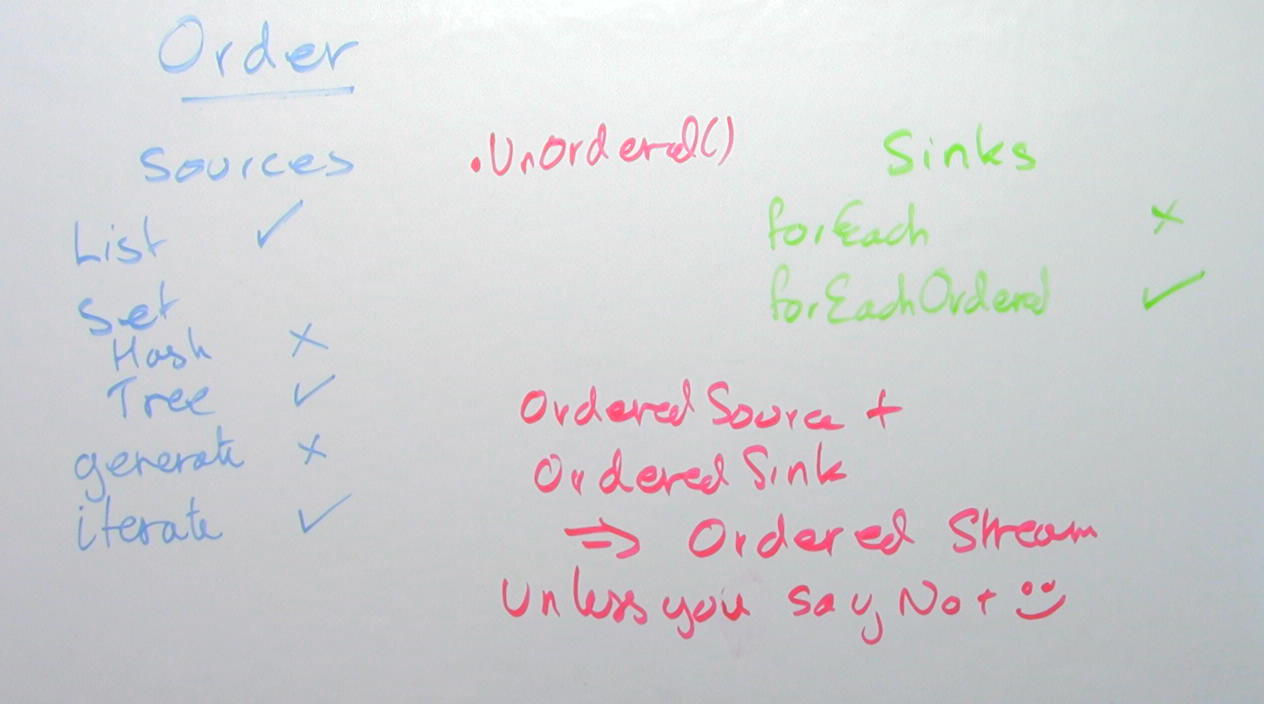 Order
Sources
List ✓
Set
Hash ×
Tree ✓
generate ×
iterate ✓
.UnOrdered()
Sinks
forEach ×
forEachOrdered ✓
Ordered Source +
Ordered Sink
⇒ Ordered Stream
Unless you say Not ☺